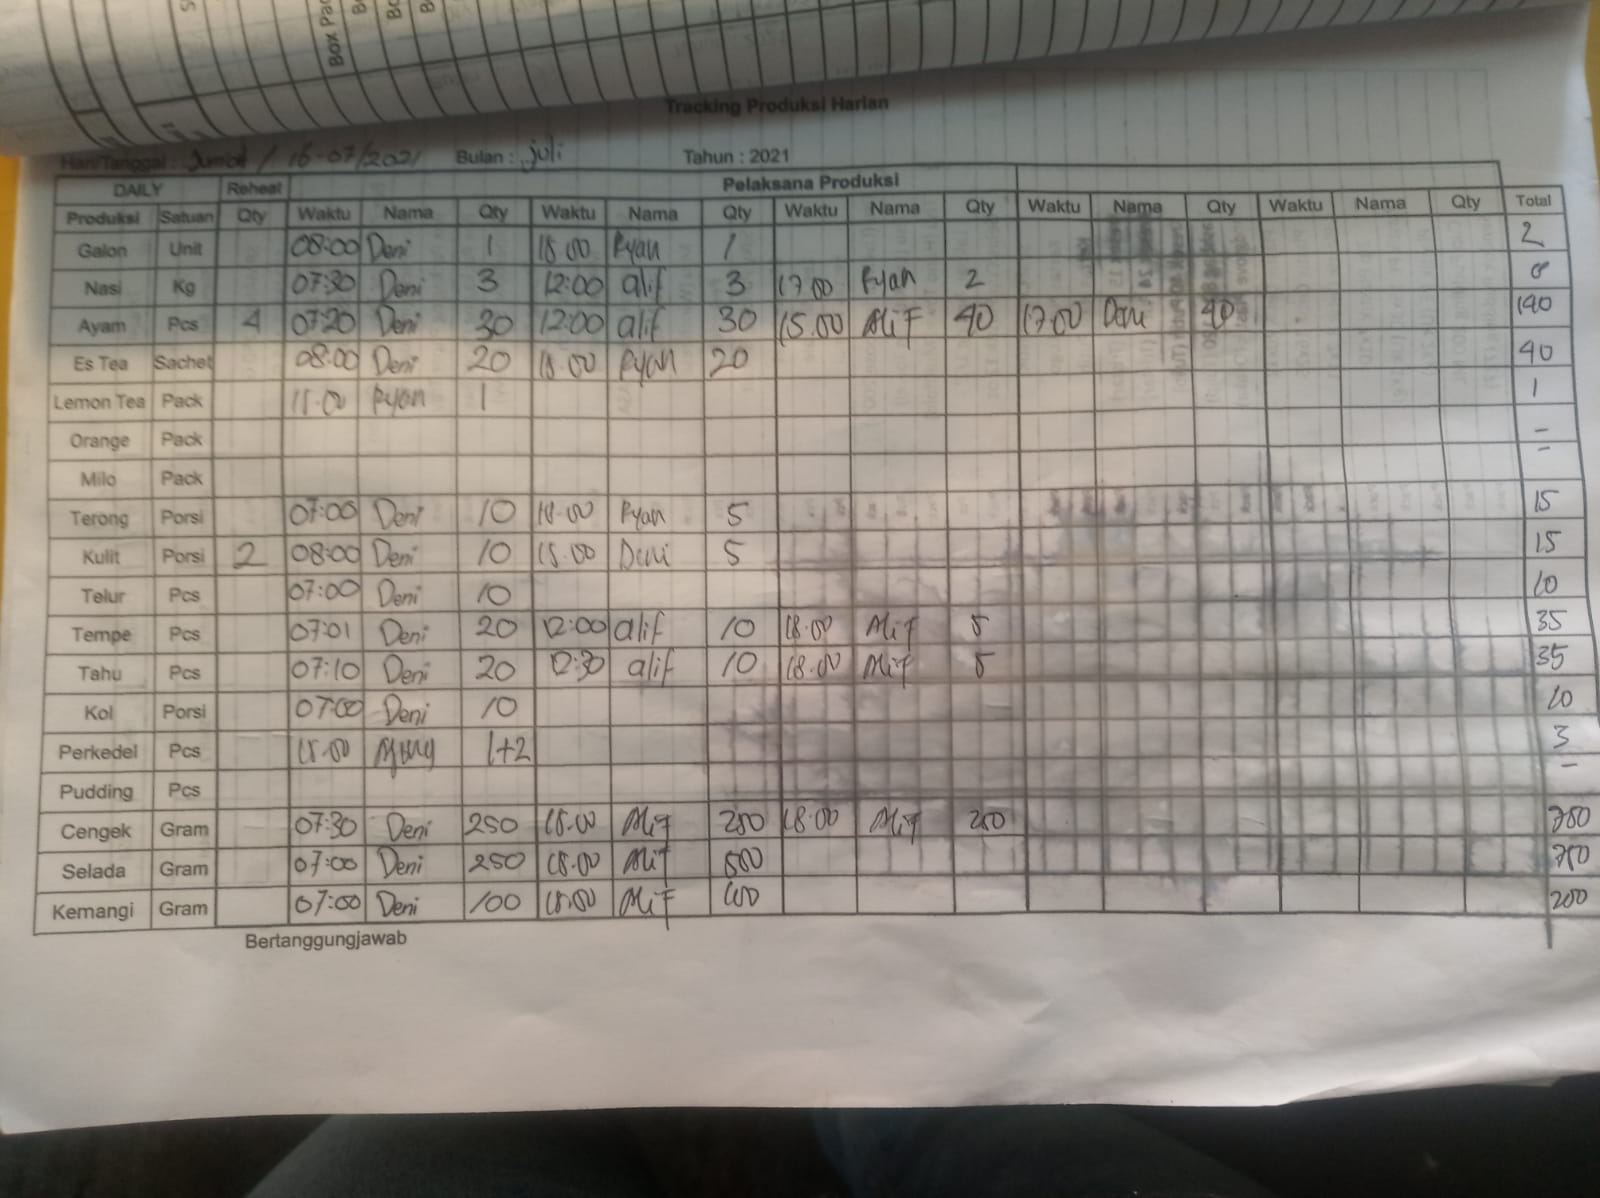 Box Pac
Tracking Produksi Harian
Hari/Tanggal : Jumat / 16-07/2021 Bulan : juli Tahun : 2021
DAILY Reheat Pelaksana Produksi
Produksi Satuan Qty Waktu Nama Qty Waktu Nama Qty Waktu Nama Qty Waktu Nama Qty Waktu Nama Qty Total
Galon Unit 08:00 Deni 1 18.00 Ryan 1 2
Nasi Kg 07:30 Deni 3 12:00 alif 3 17.00 Ryan 2 8
Ayam Pcs 4 07:20 Deni 30 12:00 alif 30 15.00 Alif 40 17.00 Deni 40 140
Es Tea Sachet 08:00 Deni 20 18.00 Ryan 20 40
Lemon Tea Pack Ryan 1 1
Orange Pack -
Milo Pack -
Terong Porsi 07:00 Deni 10 18.00 Ryan 5 15
Kulit Porsi 2 08:00 Deni 10 15.00 Deni 5 15
Telur Pcs 07:00 Deni 10 10
Tempe Pcs 07:01 Deni 20 12:00 alif 10 18.00 Alif 5 35
Tahu Pcs 07:10 Deni 20 12:30 alif 10 18.00 Alif 5 35
Kol Porsi 07:00 Deni 10 10
Perkedel Pcs 1+2 3
Pudding Pcs -
Cengek Gram 07:30 Deni 250 Alif 250 18.00 Alif 250 750
Selada Gram 07:00 Deni 250 18.00 Alif 500 750
Kemangi Gram 07:00 Deni 100 18.00 Alif 100 200
Bertanggungjawab